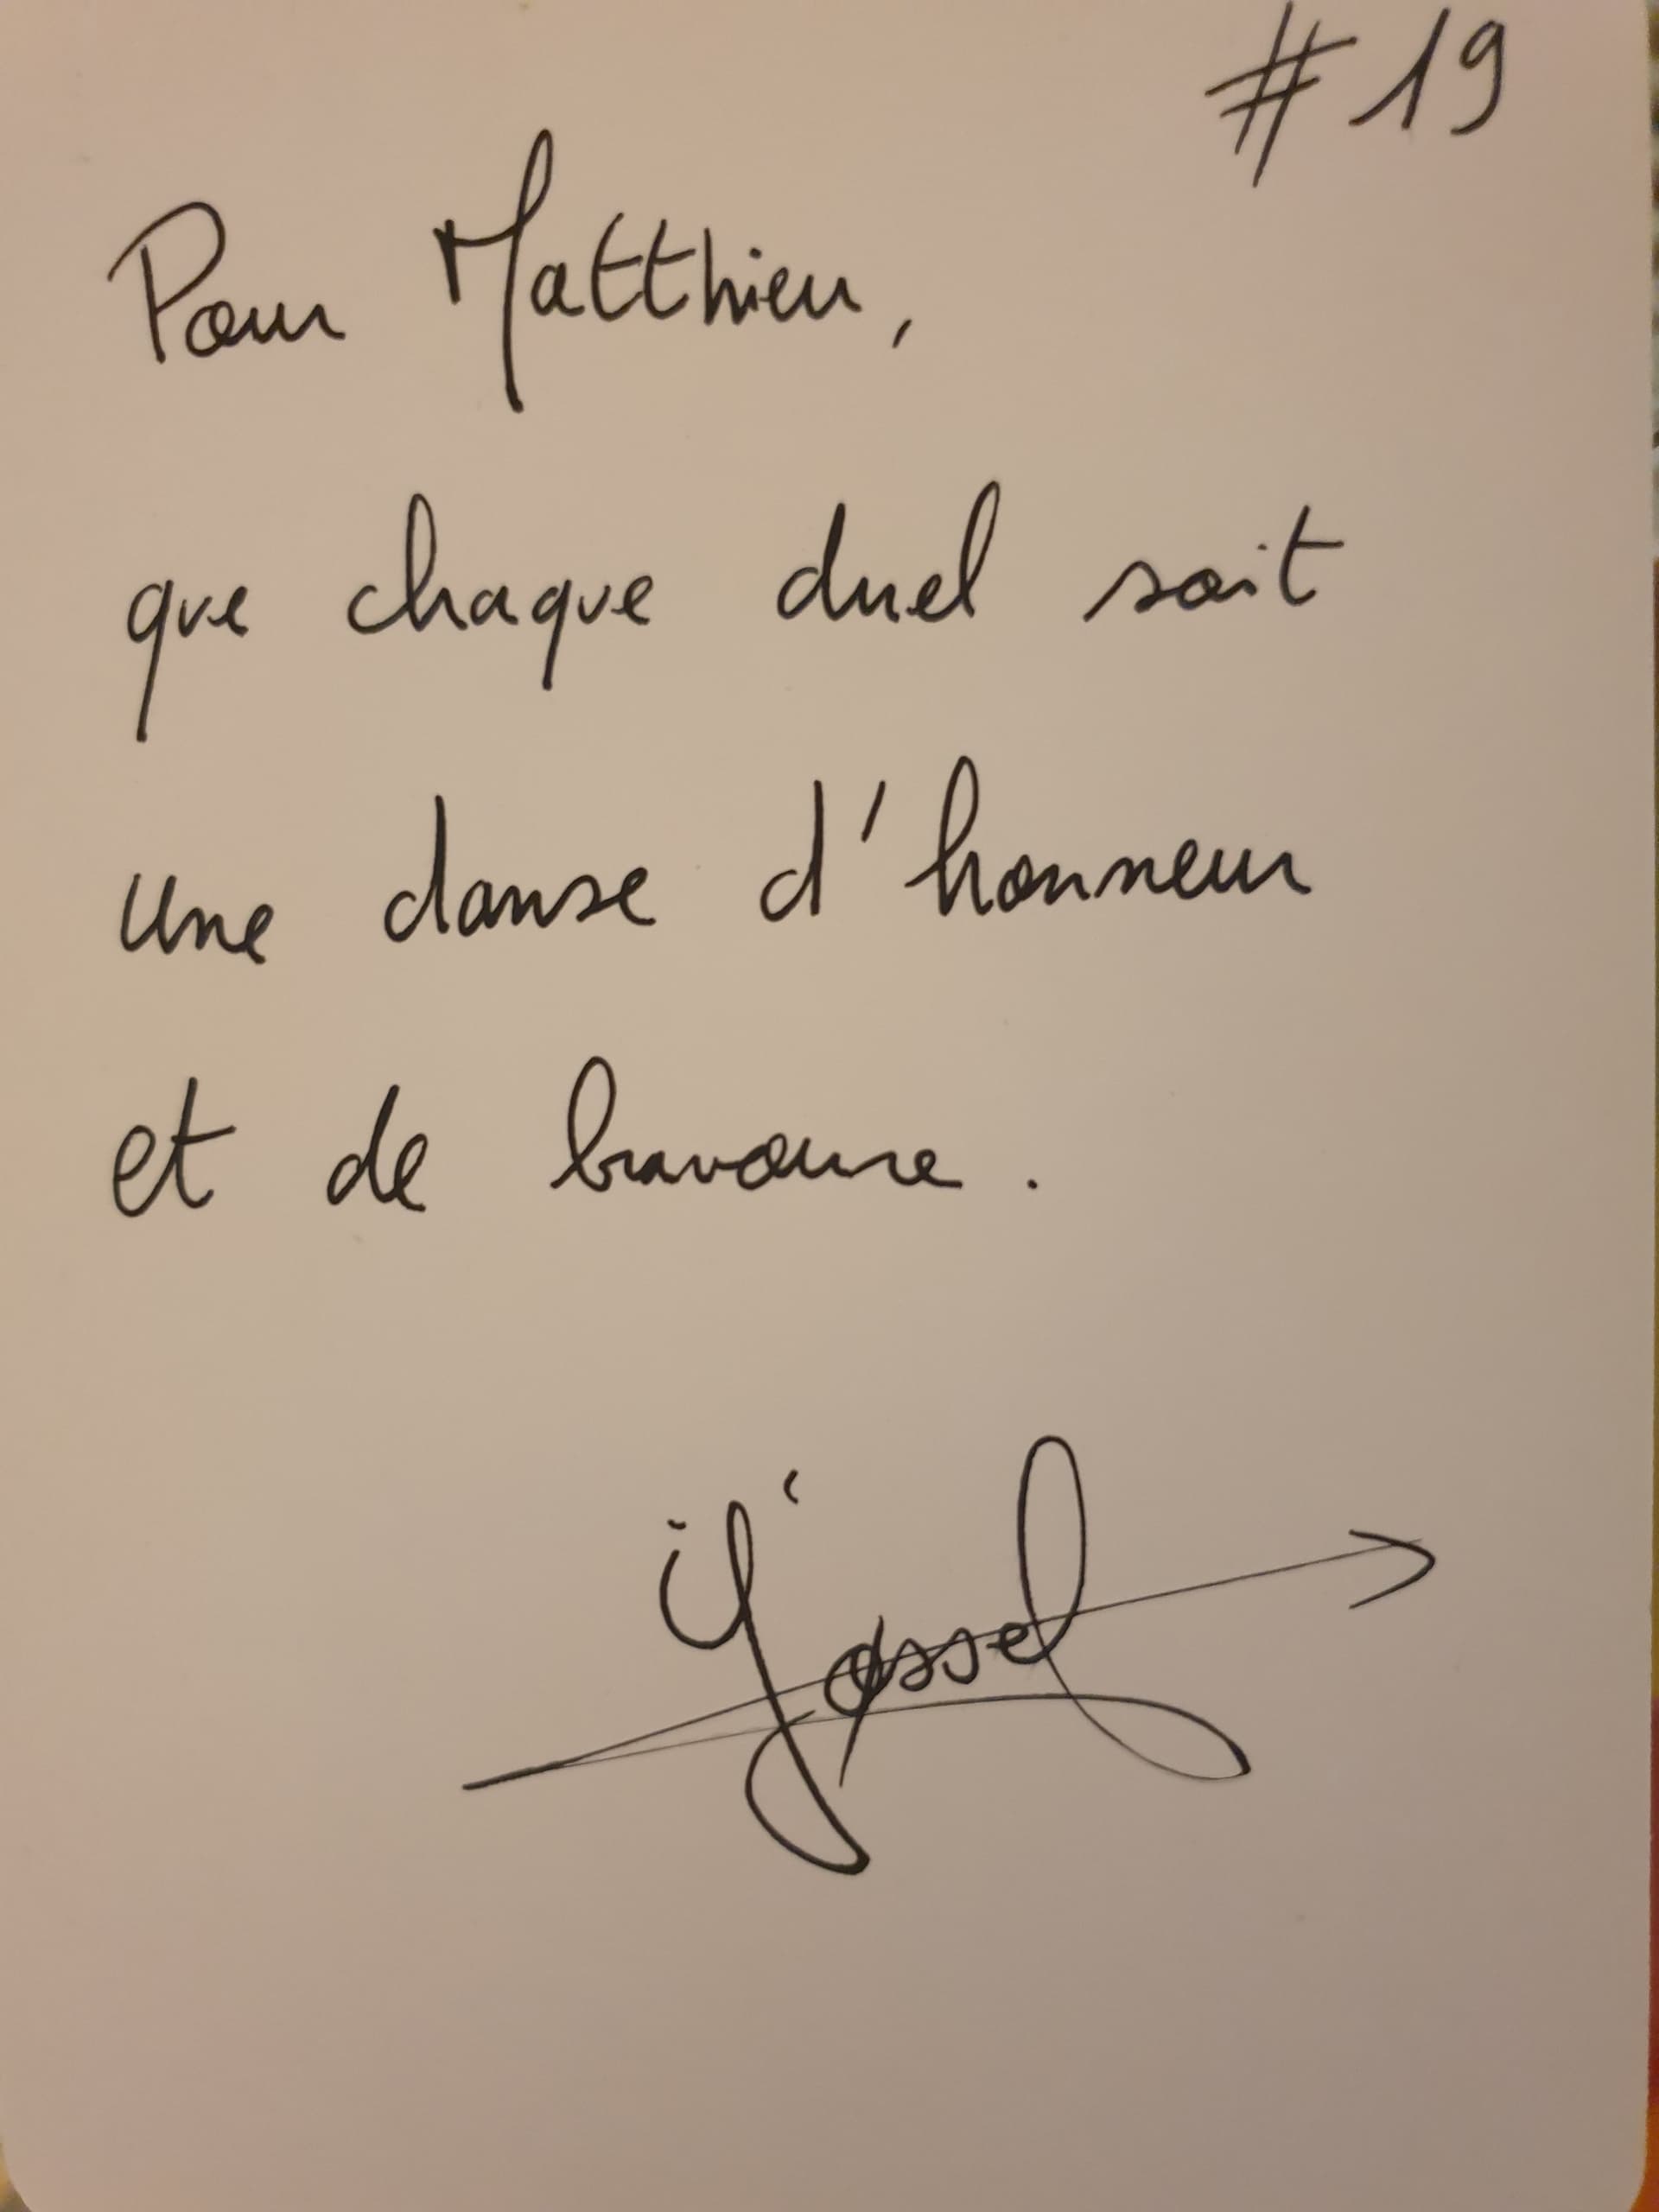 #19
Pour Matthieu,
que chaque duel soit
une danse d'honneur
et de bravoure.